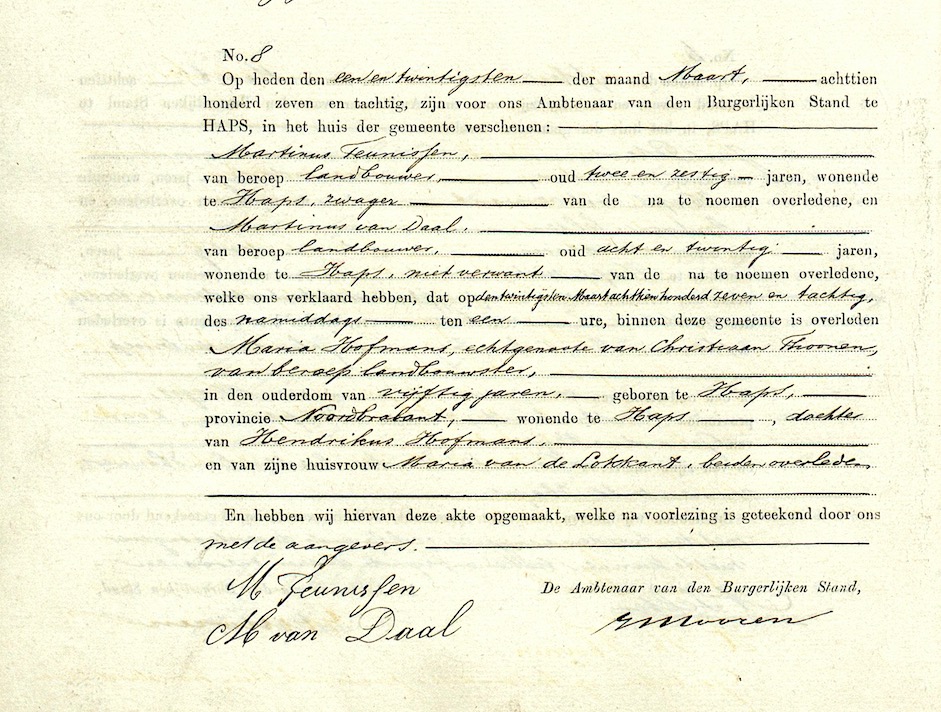 No. 8
Op heden den een en twintigsten der maand Maart, achttien
honderd zeven en tachtig, zijn voor ons Ambtenaar van den Burgerlijken Stand te
HAPS, in het huis der gemeente verschenen:
Martinus Teunissen,
van beroep landbouwer, oud twee en zestig jaren, wonende
te Haps, zwager van de na te noemen overledene, en
Martinus van Daal,
van beroep landbouwer, oud acht en twintig jaren,
wonende te Haps, niet verwant van de na te noemen overledene,
welke ons verklaard hebben, dat op den twintigsten Maart achttienhonderd zeven en tachtig,
des namiddags ten een ure, binnen deze gemeente is overleden
Maria Hofmans, echtgenoote van Christiaan Thoonen,
van beroep landbouwster,
in den ouderdom van vijftig jaren, geboren te Haps,
provincie Noordbrabant, wonende te Haps, dochter
van Hendrikus Hofmans,
en van zijne huisvrouw Maria van de Lokkant, beiden overleden
En hebben wij hiervan deze akte opgemaakt, welke na voorlezing is geteekend door ons
met de aangevers.
M Teunissen
De Ambtenaar van den Burgerlijken Stand,
M van Daal